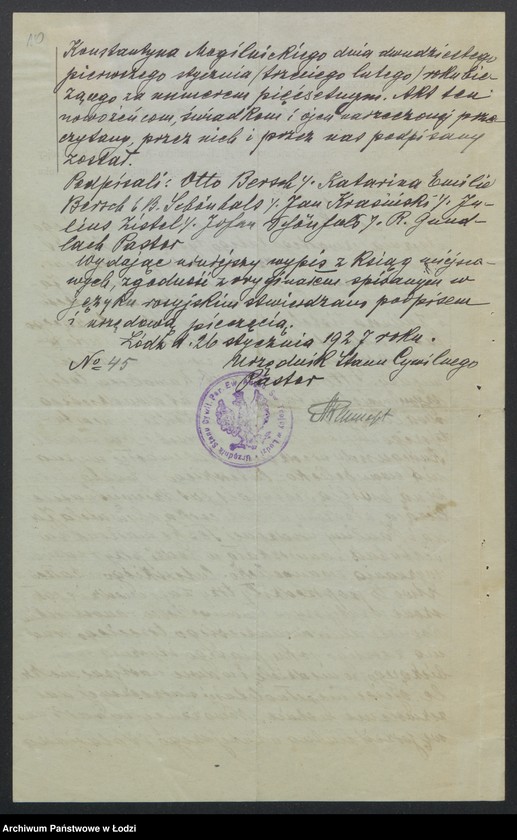 Konstantyna Mogilnickiego dnia dwudziestego
pierwszego stycznia /trzeciego lutego/ roku bie-
żącego za numerem pięćsetnym. Akt ten
nowożeńcom, świadkom i ojcu narzeczonej prze-
czytany, przez nich i przez nas podpisany
został.
Podpisali: Otto Bersch /. Katarina Emilie
Bersch /. B. Schönhals /. Jan Krasinski /. Ju-
lius Zistel /. Johan Schönhals /. R. Gund-
lach Pastor
Wydając niniejszy wypis z ksiąg miejsco-
wych, zgodność z oryginałem spisanym w
języku rosyjskim stwierdzam podpisem
i urzędową pieczęcią.
Łódź d. 26 stycznia 1927 roku.
No 45
Urzędnik Stanu Cywilnego
Pastor
Urzędnik Stanu Cywil. Par. Ew. w Łodzi
Archiwum Państwowe w Łodzi